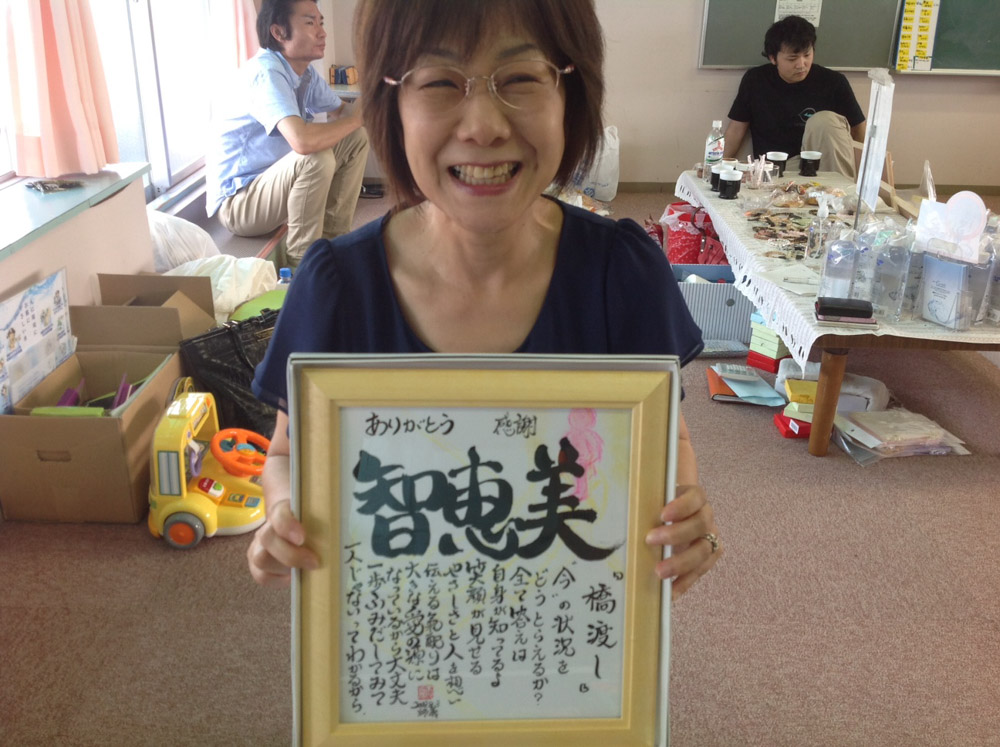 ありがとう　感謝
智恵美
"橋渡し"
"今"の状況を
どうとらえるか?
全て答えは
自身が知ってるよ
笑顔が見せる
やさしさと人を想い
伝える気配りは
大きな
なっているから大丈夫
一歩ふみだしてみて
一人じゃないってわかるから、